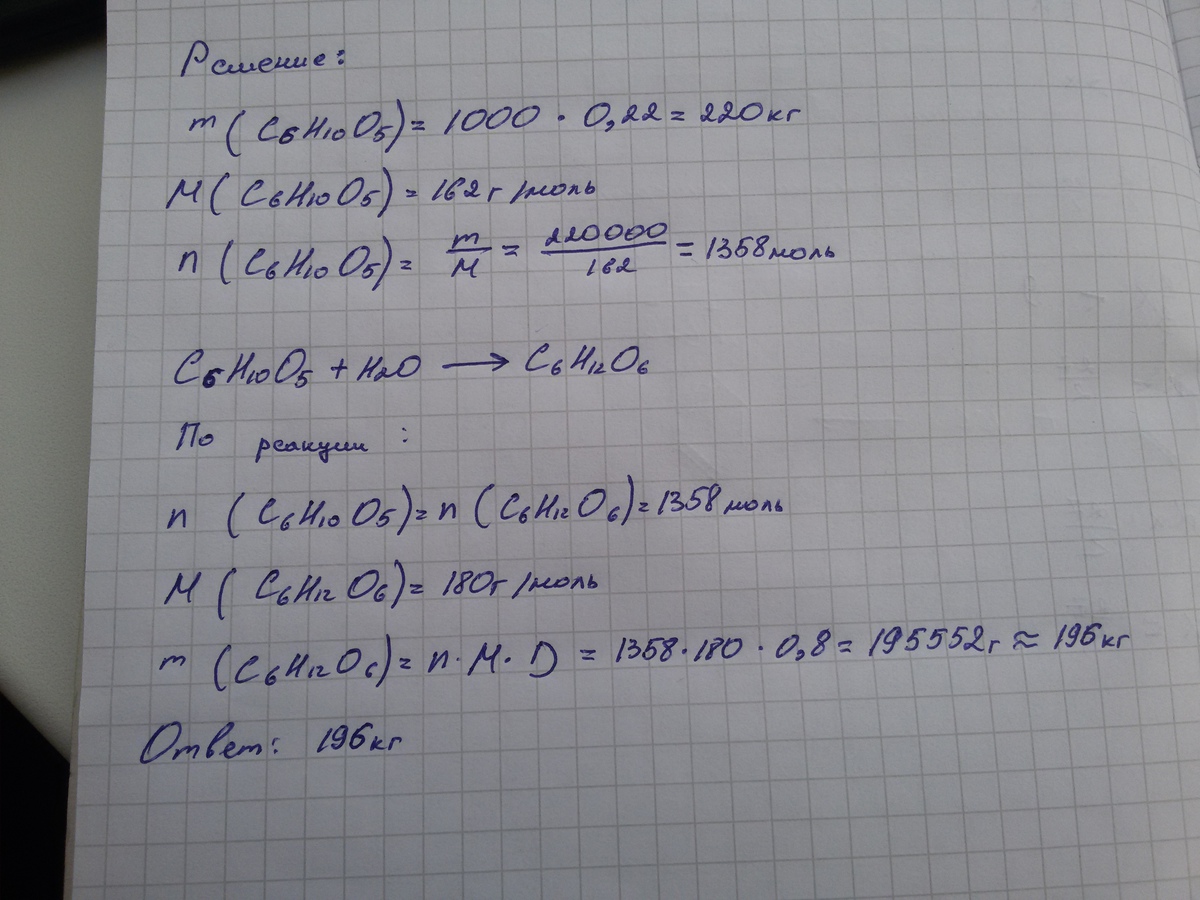 Решение:
m (C6H10O5) = 1000 · 0,22 = 220кг
M (C6H10O5) = 162г/моль
n (C6H10O5) = m/M = 220000/162 = 1358моль
C6H10O5 + H2O → C6H12O6
По реакции:
n (C6H10O5) = n (C6H12O6) = 1358моль
M (C6H12O6) = 180г/моль
m (C6H12O6) = n · M · D = 1358 · 180 · 0,8 = 195552г ≈ 196кг
Ответ: 196кг